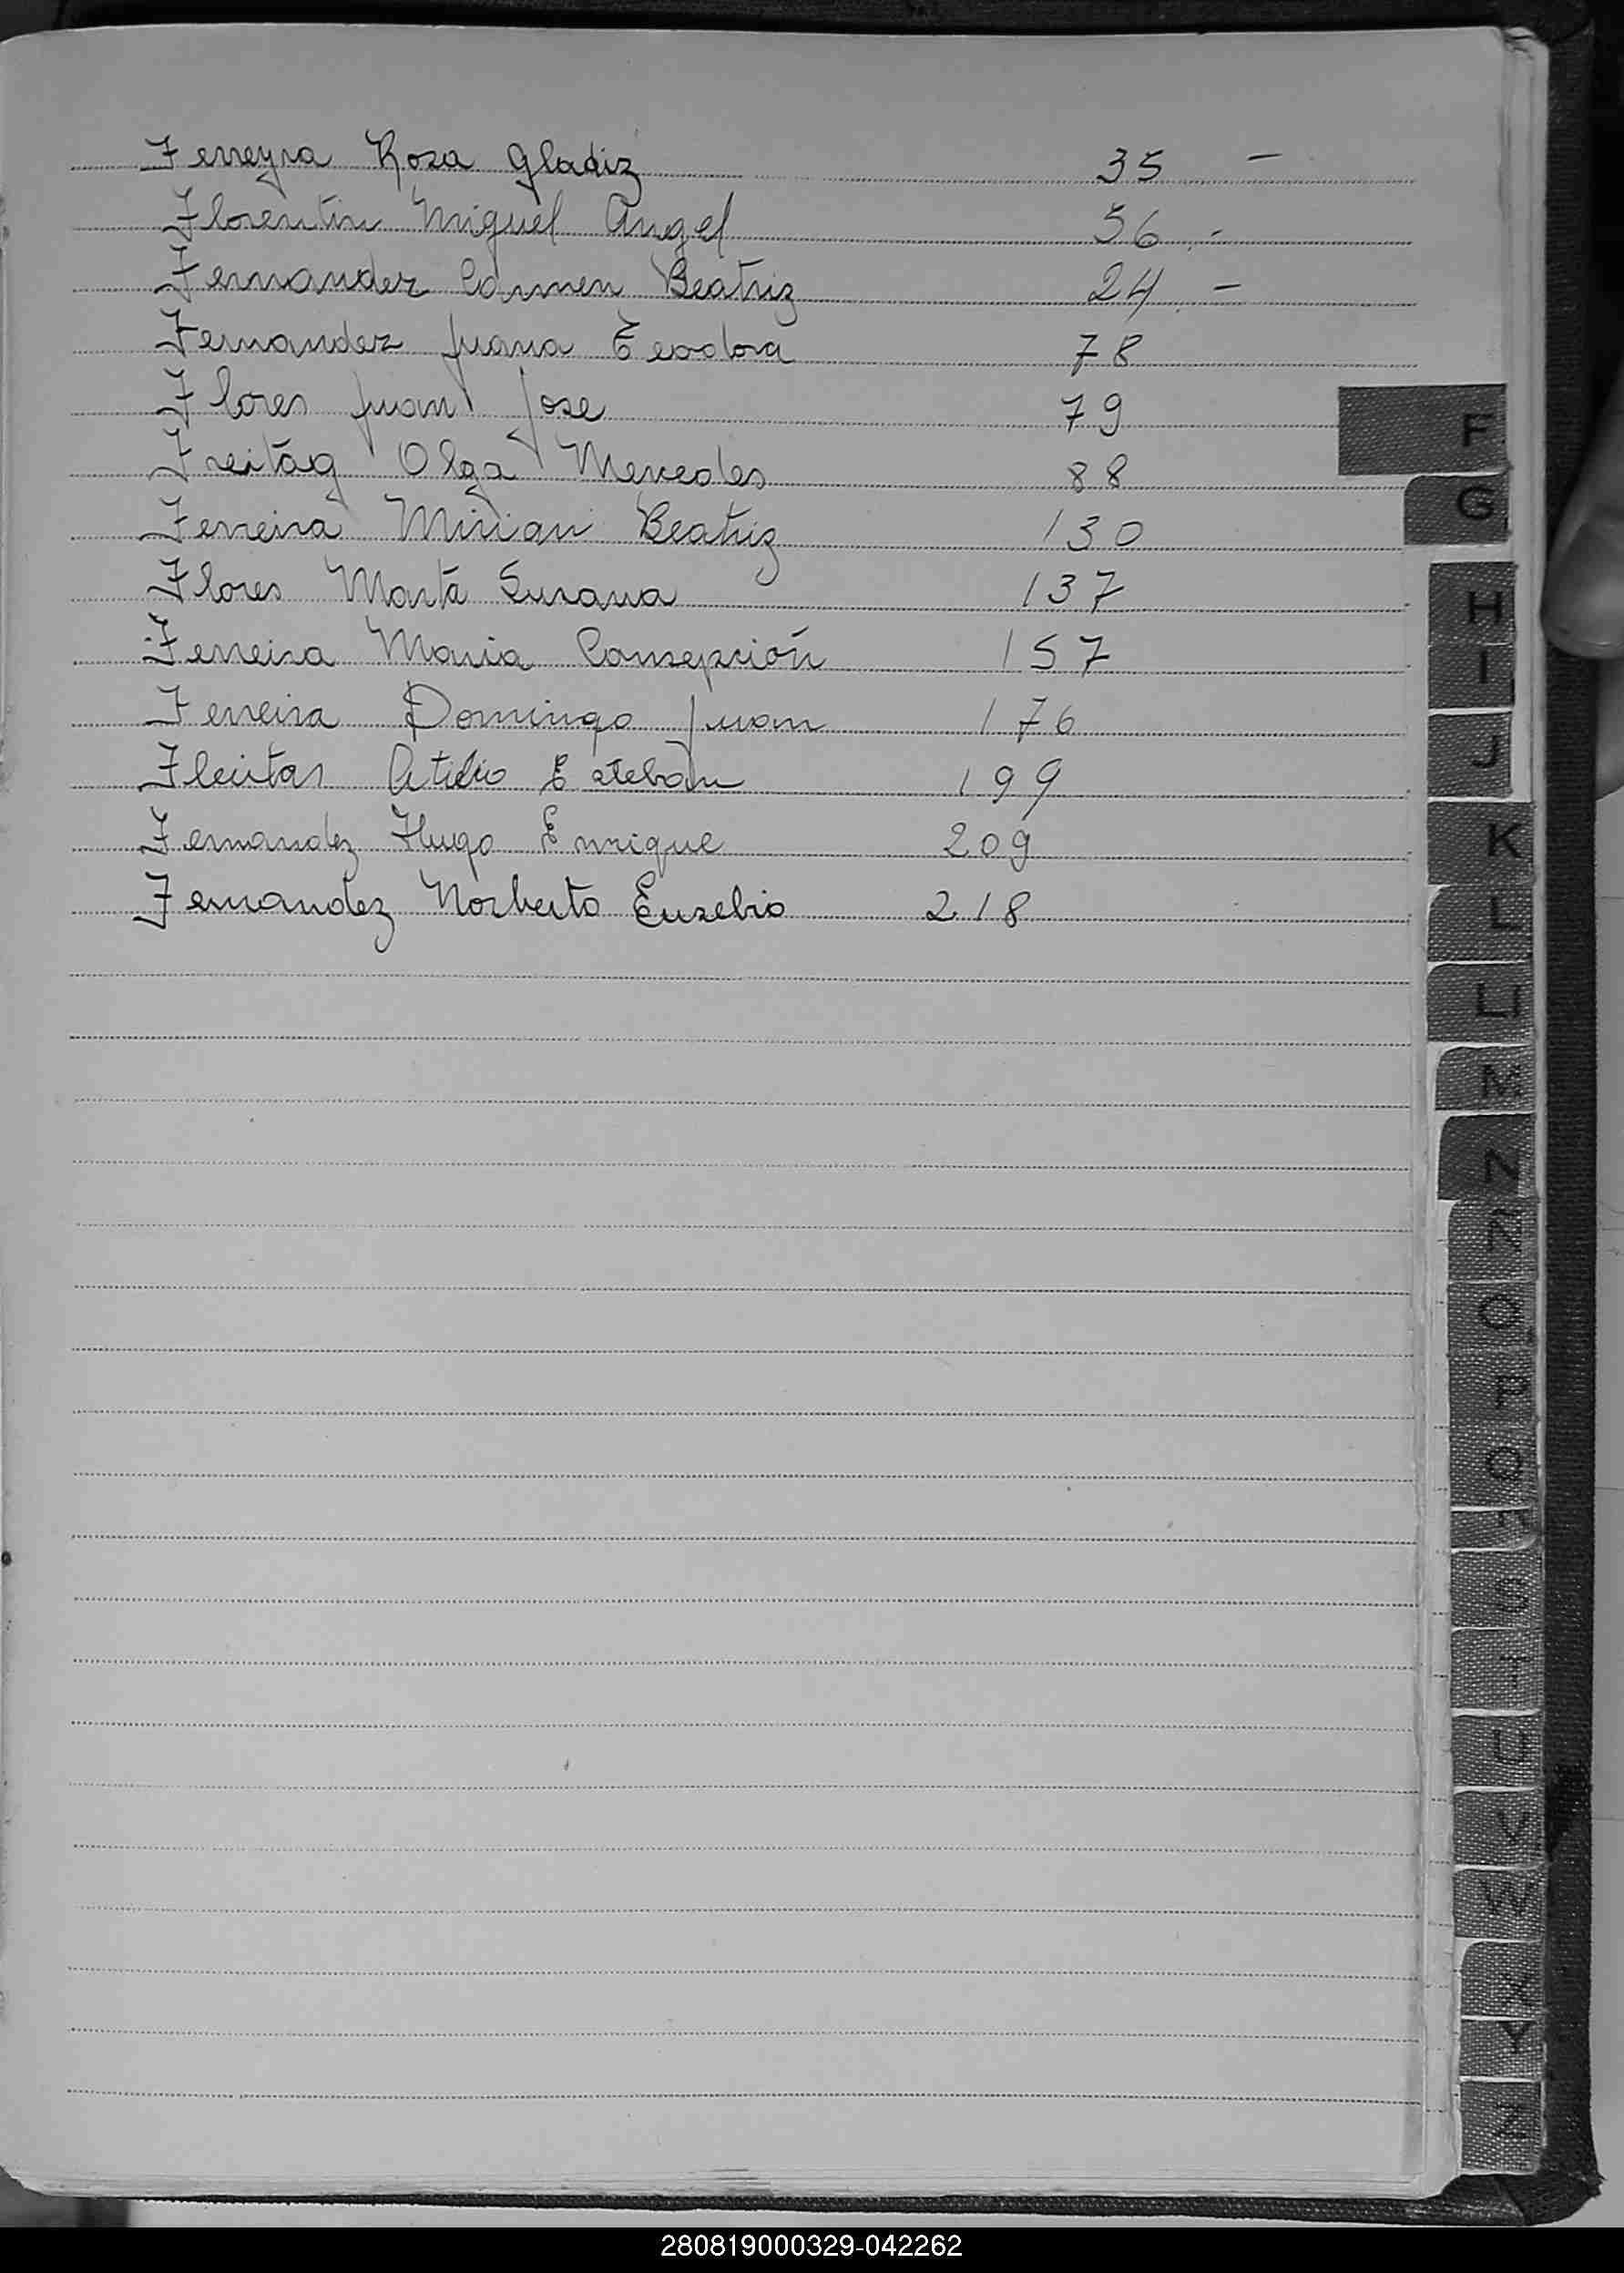 Ferreyra Rosa Gladiz 35 –
Florentin Miguel Angel 56 . –
Fernandez Carmen Beatriz 24 . –
Fernandez Juana Teodora 78
Flores Juan Jose 79
Freitag Olga Mercedes 88
Ferreira Mirian Beatriz 130
Flores Marta Susana 137
Ferreira Maria Consepción 157
Ferreira Domingo Juan 176
Fleitas Atilio Esteban 199
Fernandez Hugo Enrique 209
Fernandez Norberto Eusebio 218
F
G
H
I
J
K
L
Ll
M
N
Ñ
O
P
Q
R
S
T
U
V
W
X
Y
Z
280819000329-042262